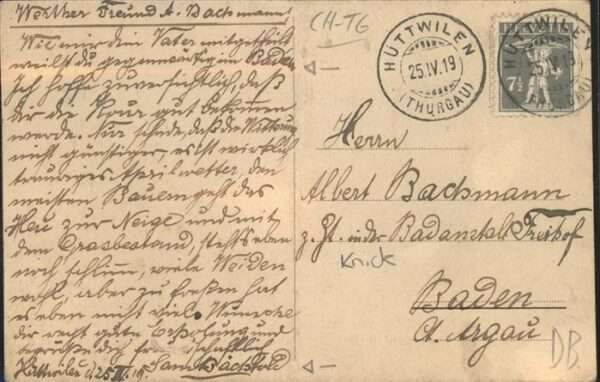 Werther Freund A. Bachmann!
Wie mir dein Vater mitgetheilt
weilst du gegenwärtig in Baden
Ich hoffe zuversichtlich, daß
dir die Kour gut bekommen
werde. Nur schade, daß die Witterung
nicht günstiger, es ist wirklich
trauriges Aprilwetter, den
meisten Bauern geht das
Heu zur Neige und mit
dem Grasbestand, steht's eben
noch schlimm, viele Weiden
wohl, aber zu freßen hat
es eben nicht viel. Wünsche
dir recht gute Erholung und
begrüße dich
Hüttwilen d. 25 IV. 19.
CH-TG
HÜTTWILEN
25.IV.19
(THURGAU)
HÜTTWILEN
25.IV.19
7½
Herrn
Albert Bachmann
z. Zt. in der Badanstalt Freihof
Knick
Baden
Ct. Argau
DB